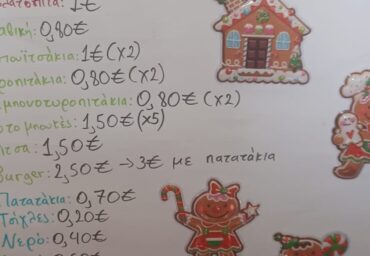 λατόπιτα: 1€
αβική: 0,80€
τοϊτσάκια: 1€(x2)
ροπιτάκια: 0,80€(x2)
μπουνοτυροπιτάκια: 0,80€(x2)
το μπωτές: 1,50€(x5)
ίτσα: 1,50€
Burger: 2,50€ → 3€ με πατατάκια
Πατατάκια: 0,70€
Τσίχλες: 0,20€
Νερό: 0,40€
0,60€